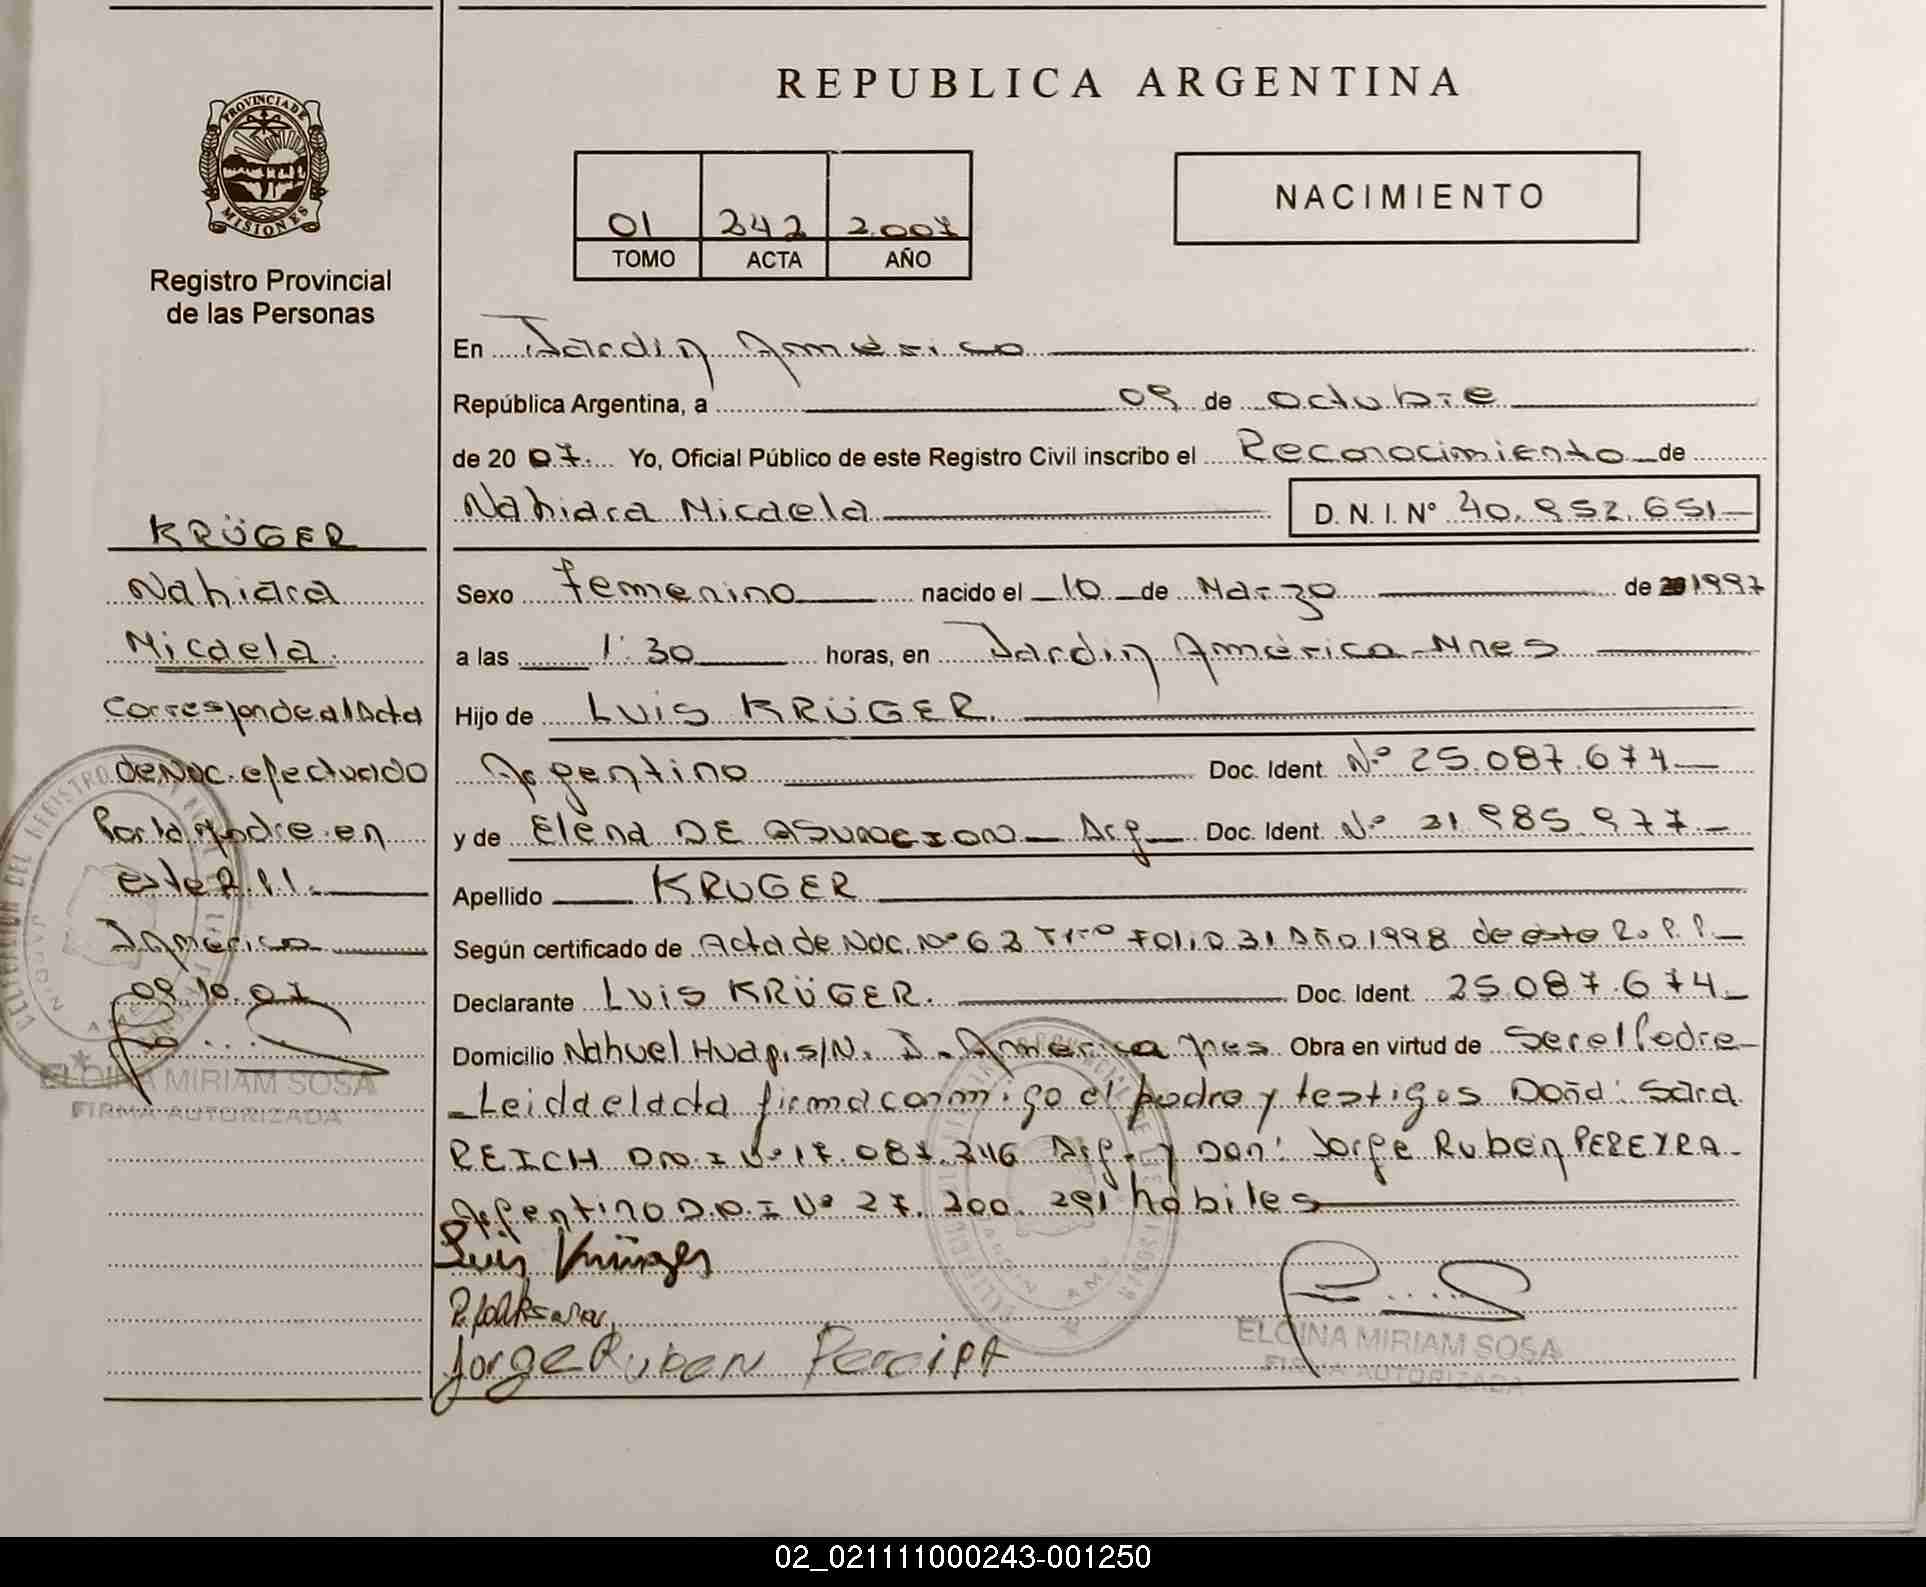 REPUBLICA ARGENTINA
PROVINCIA DE
MISIONES
Registro Provincial
de las Personas
01 242 2.007
TOMO ACTA AÑO
NACIMIENTO
En Jardin América
República Argentina, a 09 de octubre
de 20 07. Yo, Oficial Público de este Registro Civil inscribo el Reconocimiento de
Nahiara Micaela D. N. I. Nº 40.952.651
Sexo femenino nacido el 10 de Marzo de 1997
a las 1:30 horas, en Jardin América Mnes
Hijo de Luis KRÜGER.
Argentino Doc. Ident. Nº 25.087.674
y de Elena DE ASUNCION Arg Doc. Ident. Nº 31.985.977
Apellido KRUGER
Según certificado de Acta de Nac. Nº 62 Tº Folio 31 Año 1998 de esta R.P.P.
Declarante Luis KRÜGER. Doc. Ident. 25.087.674
Domicilio Nahuel Huapi s/N. J. América Mnes Obra en virtud de Ser el Padre
Leida el acta firma conmigo el padre y testigos Doña: Sara
REICH D.N.I Nº 17.087.246 Arg. y Don: Jorge Ruben PEREYRA
Argentino D.N.I Nº 27.200.291 hábiles
Luis Krüger
Jorge Ruben Pereira
ELOINA MIRIAM SOSA
FIRMA AUTORIZADA
KRÜGER
Nahiara
Micaela.
Corresponde al Acta
de Nac. efectuado
Por la madre en
este R.P.P.
J América
09.10.07
ELOINA MIRIAM SOSA
FIRMA AUTORIZADA
02_021111000243-001250